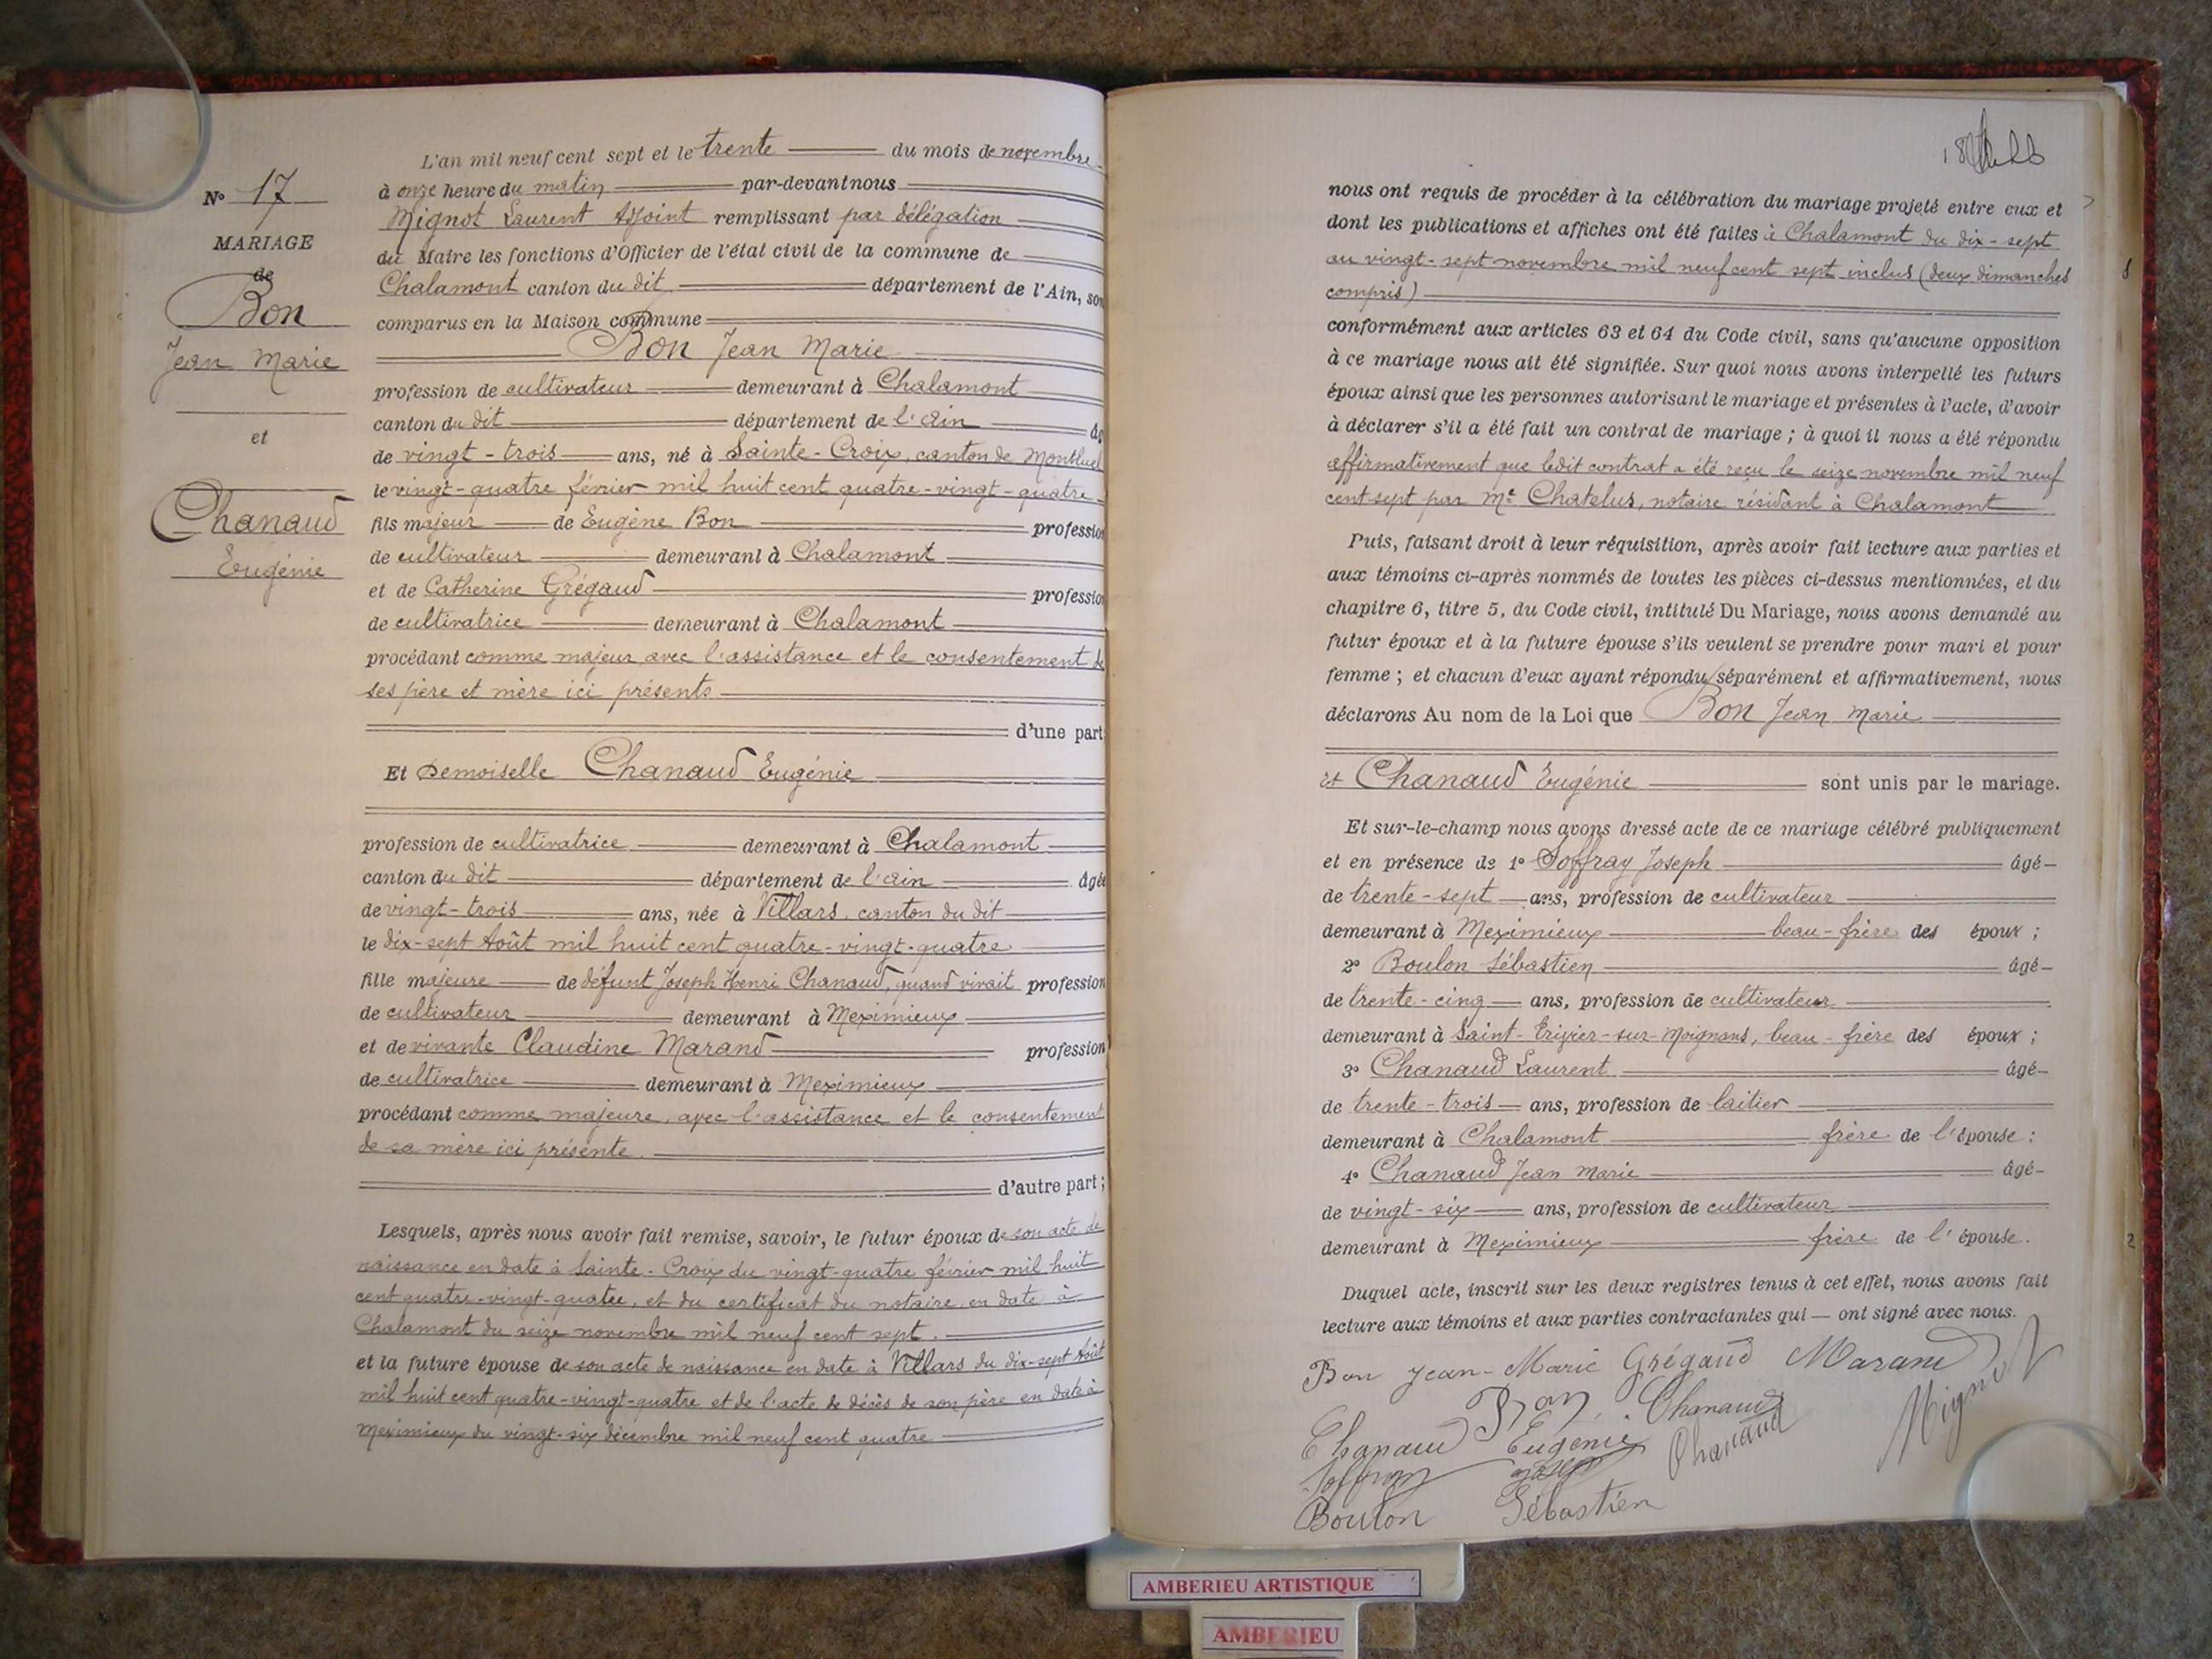 N° 17
MARIAGE
de
Bon
Jean Marie
et
Chanaud
Eugénie
L'an mil neuf cent sept et le trente du mois de novembre
à onze heure du matin par-devant nous
Mignot Laurent Adjoint remplissant par délégation
du Maire les fonctions d'Officier de l'état civil de la commune de
Chalamont canton du dit département de l'Ain, son
comparus en la Maison commune
Bon Jean Marie
profession de cultivateur demeurant à Chalamont
canton du dit département de l'Ain âg
de vingt-trois ans, né à Sainte-Croix, canton de Montluel
le vingt-quatre février mil huit cent quatre-vingt-quatre
fils majeur de Eugène Bon profession
de cultivateur demeurant à Chalamont
et de Catherine Grégaud profession
de cultivatrice demeurant à Chalamont
procédant comme majeur avec l'assistance et le consentement de
ses père et mère ici présents
d'une part
Et Demoiselle Chanaud Eugénie
profession de cultivatrice demeurant à Chalamont
canton du dit département de l'Ain âgée
de vingt-trois ans, née à Villars, canton du dit
le dix-sept Août mil huit cent quatre-vingt-quatre
fille majeure de défunt Joseph Henri Chanaud, quand vivait profession
de cultivateur demeurant à Meximieux
et de vivante Claudine Marand profession
de cultivatrice demeurant à Meximieux
procédant comme majeure, avec l'assistance et le consentement
de sa mère ici présente
d'autre part ;
Lesquels, après nous avoir fait remise, savoir, le futur époux de son acte de
naissance en date à Sainte-Croix du vingt-quatre février mil huit
cent quatre-vingt-quatre, et du certificat du notaire en date à
Chalamont du seize novembre mil neuf cent sept.
et la future épouse de son acte de naissance en date à Villars du dix-sept Août
mil huit cent quatre-vingt-quatre et de l'acte de décès de son père en date à
Meximieux du vingt-six décembre mil neuf cent quatre
nous ont requis de procéder à la célébration du mariage projeté entre eux et
dont les publications et affiches ont été faites à Chalamont du dix-sept
au vingt-sept novembre mil neuf cent sept inclus (deux dimanches
compris)
conformément aux articles 63 et 64 du Code civil, sans qu'aucune opposition
à ce mariage nous ait été signifiée. Sur quoi nous avons interpellé les futurs
époux ainsi que les personnes autorisant le mariage et présentes à l'acte, d'avoir
à déclarer s'il a été fait un contrat de mariage ; à quoi il nous a été répondu
affirmativement que ledit contrat a été reçu le seize novembre mil neuf
cent sept par Me Chatelus, notaire résidant à Chalamont
Puis, faisant droit à leur réquisition, après avoir fait lecture aux parties et
aux témoins ci-après nommés de toutes les pièces ci-dessus mentionnées, et du
chapitre 6, titre 5, du Code civil, intitulé Du Mariage, nous avons demandé au
futur époux et à la future épouse s'ils veulent se prendre pour mari et pour
femme ; et chacun d'eux ayant répondu séparément et affirmativement, nous
déclarons Au nom de la Loi que Bon Jean Marie
et Chanaud Eugénie sont unis par le mariage.
Et sur-le-champ nous avons dressé acte de ce mariage célébré publiquement
et en présence de 1° Soffray Joseph âgé
de trente-sept ans, profession de cultivateur
demeurant à Meximieux beau-frère des époux ;
2° Boulon Sébastien âgé
de trente-cinq ans, profession de cultivateur
demeurant à Saint-Trivier-sur-Moignans, beau-frère des époux ;
3° Chanaud Laurent âgé
de trente-trois ans, profession de laitier
demeurant à Chalamont frère de l'épouse ;
4° Chanaud Jean Marie âgé
de vingt-six ans, profession de cultivateur
demeurant à Meximieux frère de l'épouse.
Duquel acte, inscrit sur les deux registres tenus à cet effet, nous avons fait
lecture aux témoins et aux parties contractantes qui — ont signé avec nous.
Bon Jean-Marie Grégaud Marand
Bon Chanaud Mignot
Chanaud Eugénie Chanaud
Boulon Sébastien
AMBERIEU ARTISTIQUE
AMBERIEU